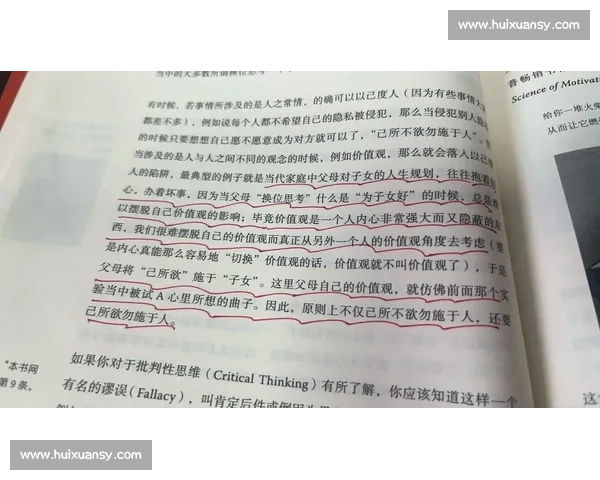 www.huixuansy.com
当中的大多数所谓换位思考
有时候，若事情所涉及的是人之常情，的确可以以己度人（因为有些事情大
都差不多），例如说每个人都不希望自己的隐私被侵犯，那么当侵犯别人隐
的时候只要想想自己愿不愿意成为对方就可以了，“己所不欲勿施于人”。
当涉及的是人与人之间不同的观念的时候，例如价值观，那么就会落入以己
人的陷阱，最典型的例子就是当代家庭中父母对子女的人生规划，往往抱着
心，办着坏事，因为当父母“换位思考”什么是“为子女好”的时候，总是难
以摆脱自己价值观的影响；毕竟价值观是一个人内心非常强大而又隐蔽的东
西，我们很难摆脱自己的价值观而真正从另外一个人的价值观角度去考虑（要
是内心真能那么容易地“切换”价值观的话，价值观就不叫价值观了），于是
父母将“己所欲”施于“子女”。这里父母自己的价值观，就仿佛前面那个实
验当中被试A心里所想的曲子。因此，原则上不仅己所不欲勿施于人，还要
己所欲勿施于人。
如果你对于批判性思维（Critical Thinking）有所了解，你应该知道这样一个
有名的谬误（Fallacy），叫肯定后件或倒因为果
“本书网
第9条。
普畅销书作
Science of Motivat
给你一堆火柴
从而让它燃
这
www.huixuansy.com